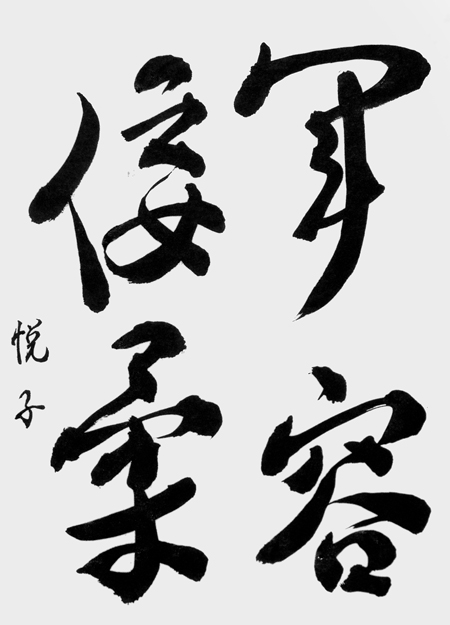 軍容
優柔
悦子